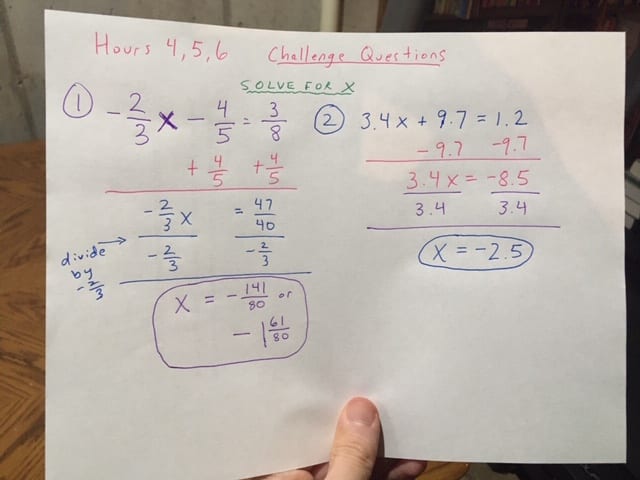 Hours 4,5,6 Challenge Questions
SOLVE FOR X
① -2/3 x - 4/5 = 3/8
+ 4/5 + 4/5
-2/3 x = 47/40
divide → -2/3 -2/3
by
-2/3
x = -141/80 or
- 1 61/80
② 3.4x + 9.7 = 1.2
- 9.7 -9.7
3.4x = -8.5
3.4 3.4
x = -2.5